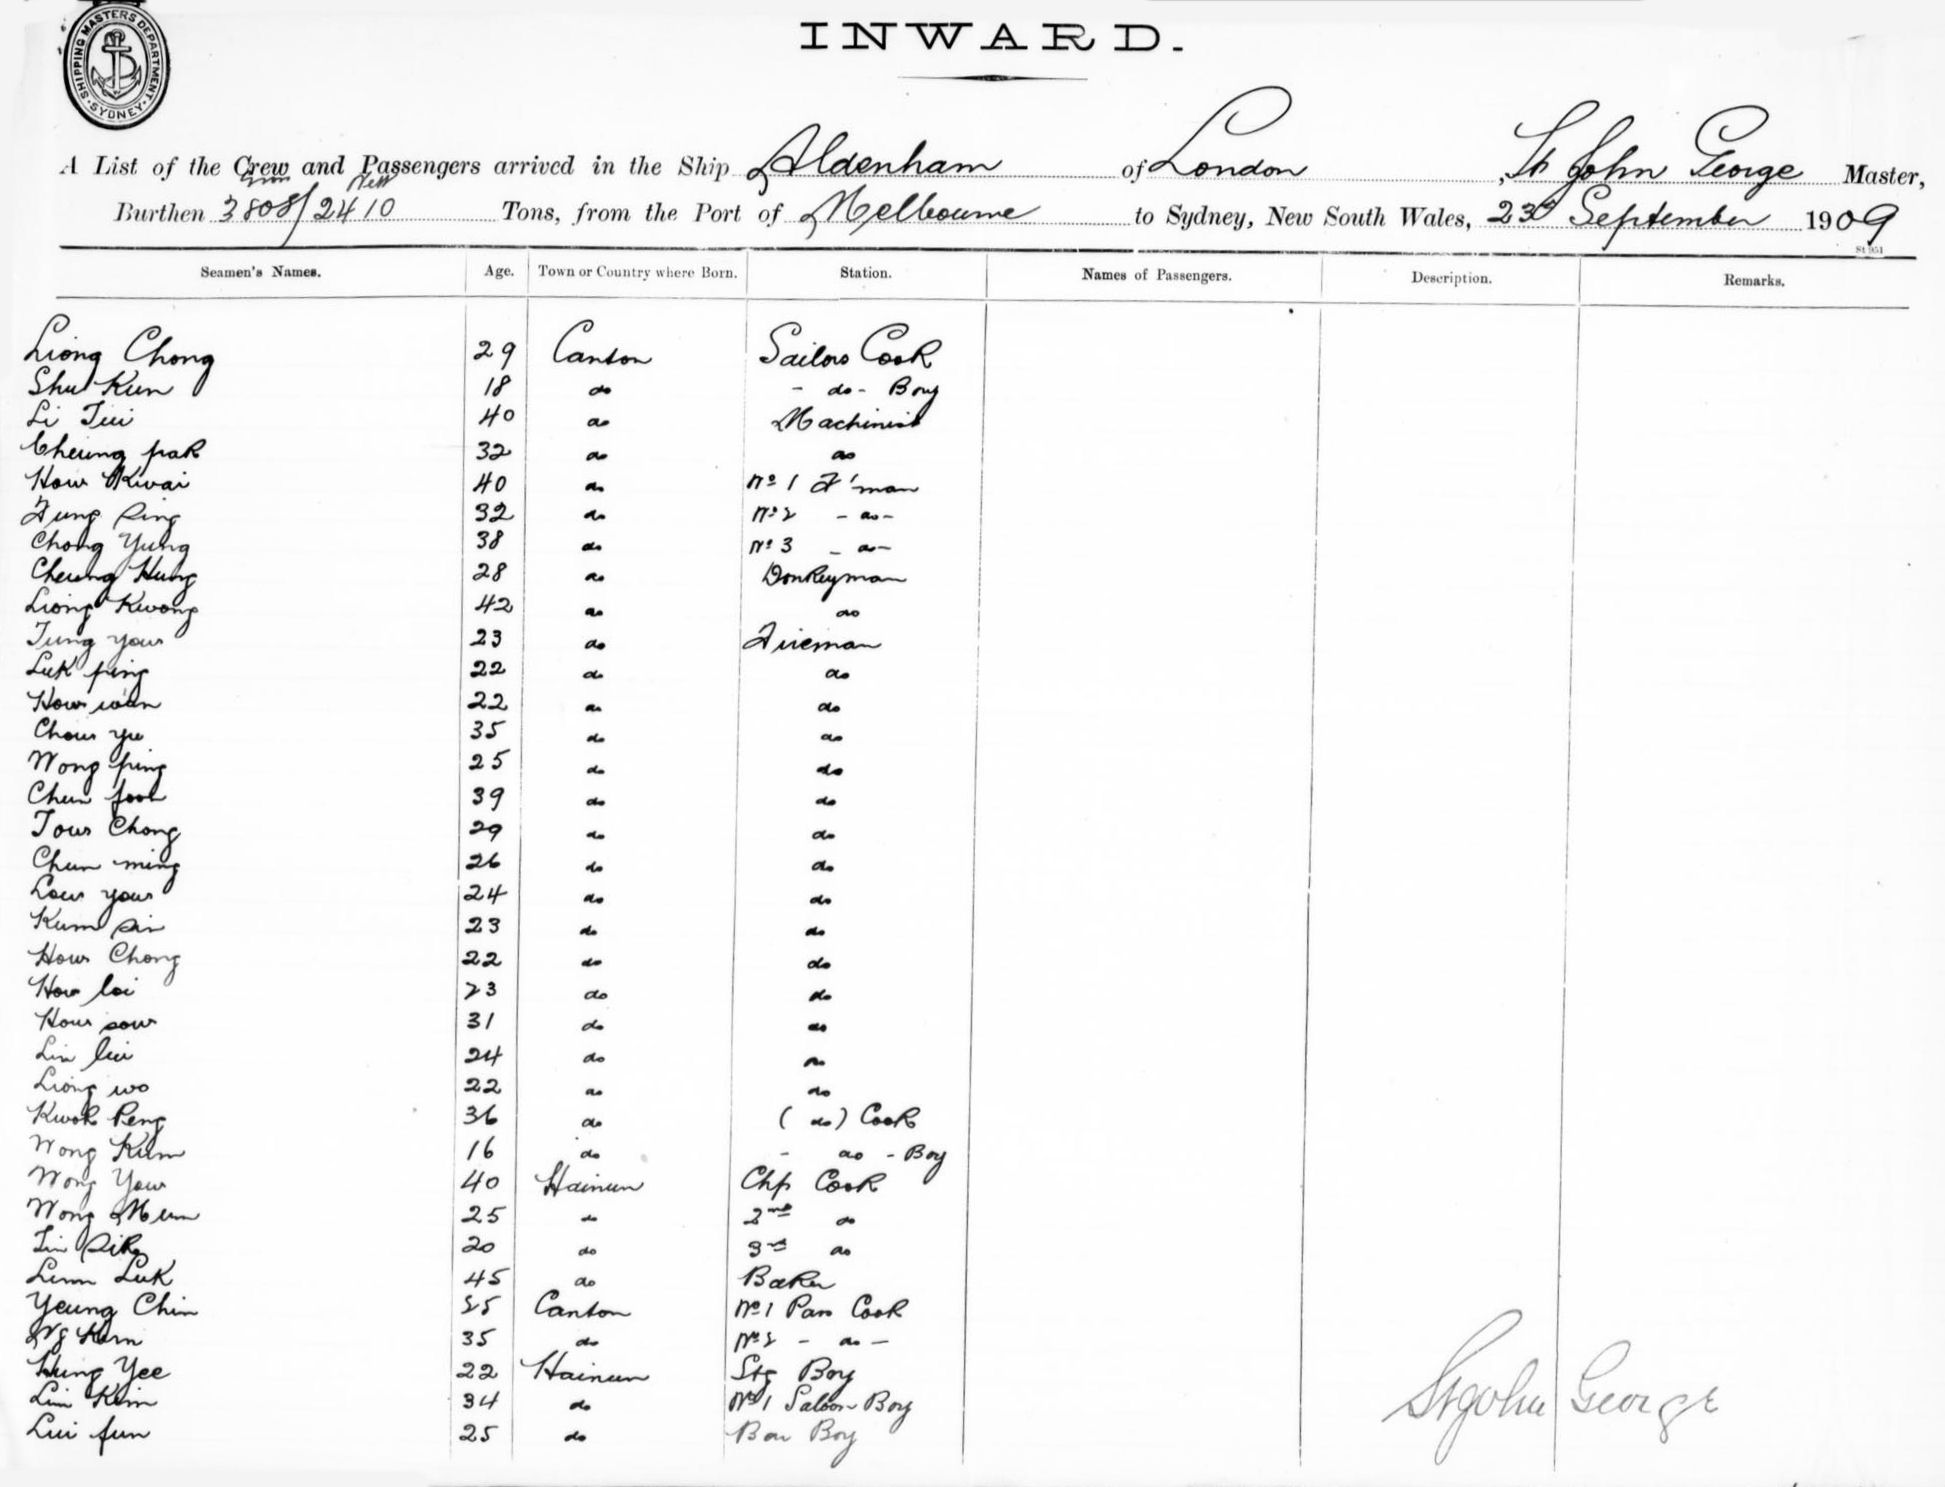 SHIPPING MASTERS DEPARTMENT · SYDNEY ·
INWARD.
A List of the Crew and Passengers arrived in the Ship Aldenham of London, St John George Master,
Gross Nett
Burthen 3808/2410 Tons, from the Port of Melbourne to Sydney, New South Wales, 23rd September 1909
St 951
Seamen's Names. Age. Town or Country where Born. Station. Names of Passengers. Description. Remarks.
Liong Chong 29 Canton Sailors Cook
Shu Kun 18 do - do - Boy
Li Tui 40 do Machinist
Cheung pak 32 do do
How Kwai 40 do No 1 F'man
Fung Sing 32 do No 2 - do -
Chong Yung 38 do No 3 - do -
Cheung Hung 28 do Donkeyman
Liong Kwong 42 do do
Tung yow 23 do Fireman
Luk ping 22 do do
How wan 22 do do
Chow yu 35 do do
Wong ping 25 do do
Chun fook 39 do do
Tow Chong 29 do do
Chun ming 26 do do
Low yow 24 do do
Kum sin 23 do do
How Chong 22 do do
How loi 23 do do
How sow 31 do do
Lin lui 24 do do
Liong wo 22 do do
Kwok Peng 36 do (do) Cook
Wong Kum 16 do - do - Boy
Wong Yow 40 Hainun Chf Cook
Wong Mun 25 do 2nd do
Lin Sik 20 do 3rd do
Limm Luk 45 do Baker
Yeung Chin 25 Canton No 1 Pan Cook
Ng Kam 35 do No 2 - do -
Hung Yee 22 Hainun Stg Boy
Lim Kim 34 do No 1 Saloon Boy
Lui fun 25 do Bar Boy
St John George